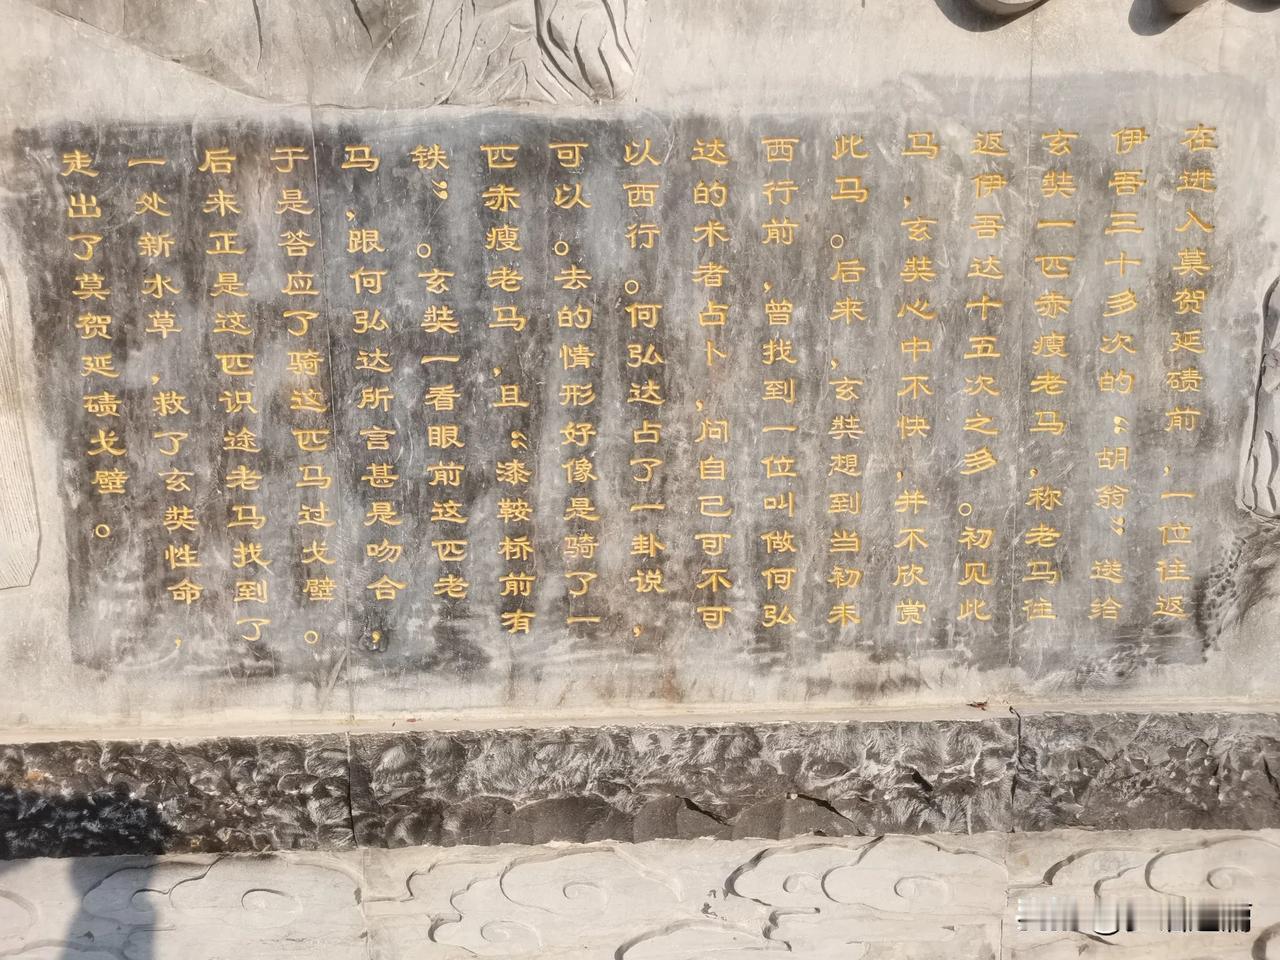 在进入莫贺延碛前，一位往返
伊吾三十多次的“胡翁”送给
玄奘一匹赤瘦老马，称老马往
返伊吾达十五次之多。初见此
马，玄奘心中不快，并不欣赏
此马。后来，玄奘想到当初未
西行前，曾找到一位叫做何弘
达的术者占卜，问自己可不可
以西行。何弘达占了一卦说，
可以。去的情形好像是骑了一
匹赤瘦老马，且“漆鞍桥前有
铁”。玄奘一看眼前这匹老
马，跟何弘达所言甚是吻合，
于是答应了骑这匹马过戈壁。
后来正是这匹识途老马找到了
一处新水草，救了玄奘性命，
走出了莫贺延碛戈壁。